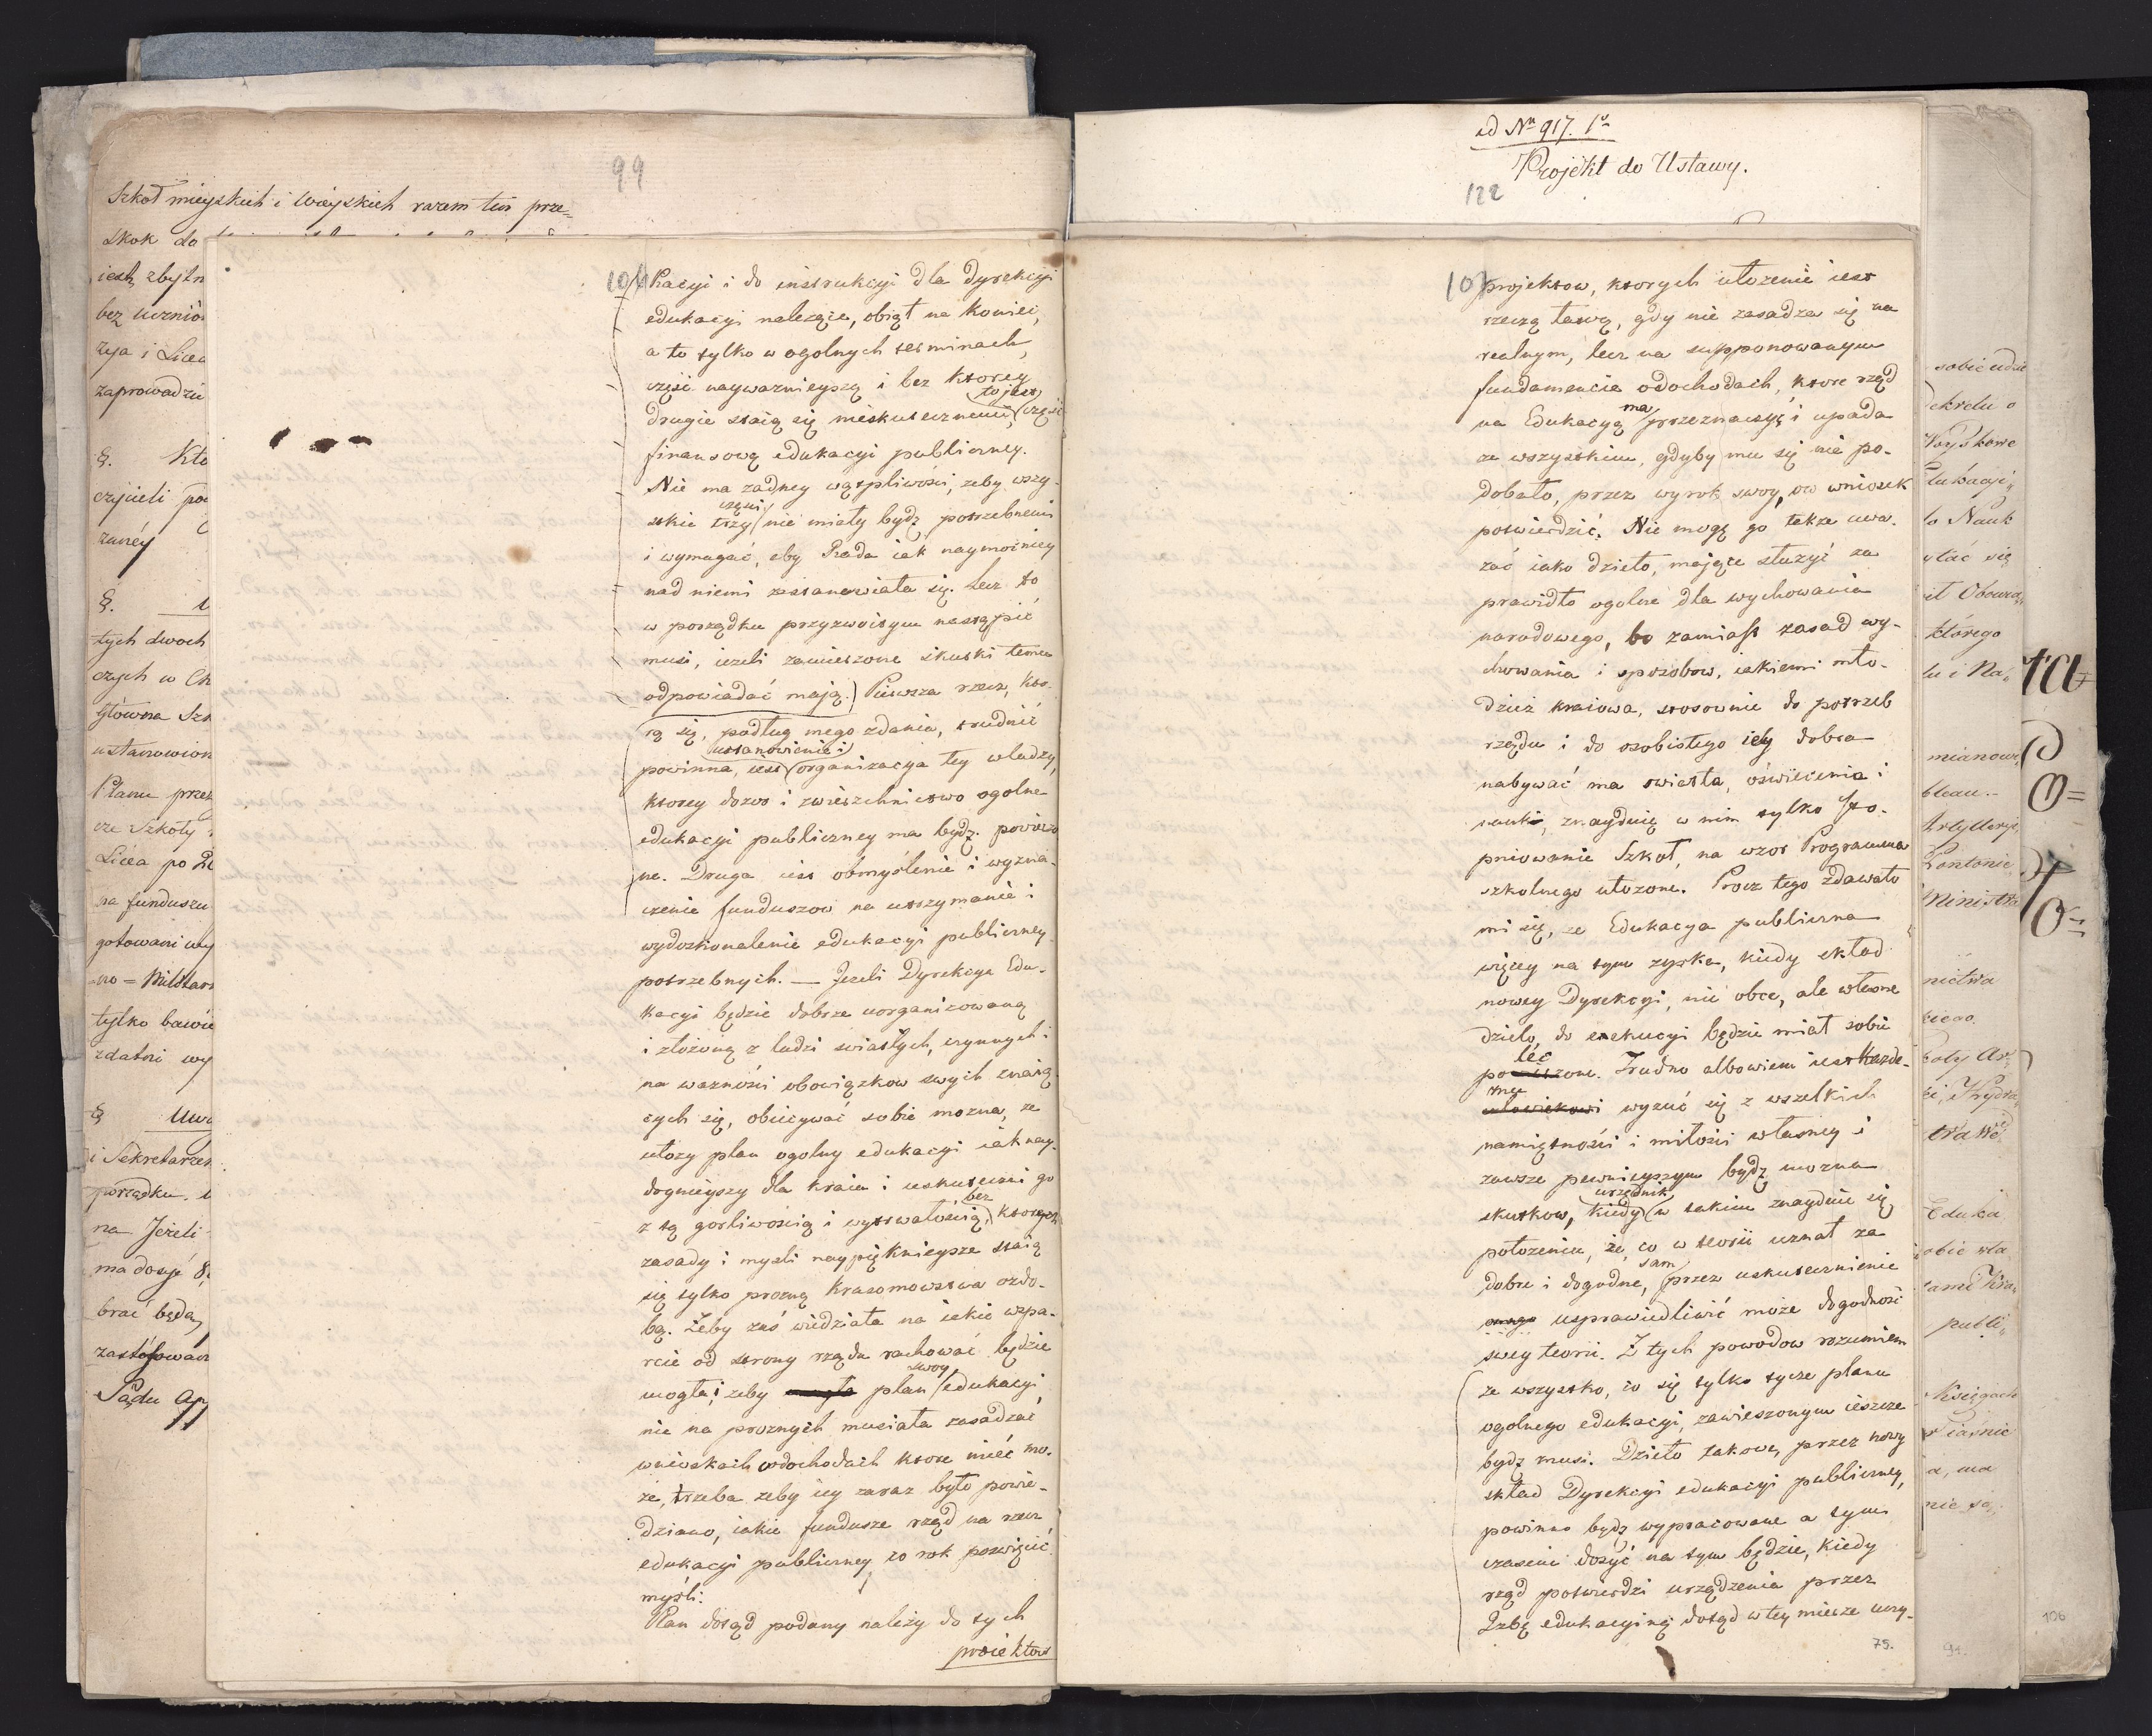 99
Szkoł mieyskich i Wieyskich razem ten prze=
skok do
iest zbytn
bez uczniów
zaprowadzić
§. Kto
czycieli po
§.
tych dwoch
czych w
Główna Szk
ustanowion
Planu przez
cze Szkoły
Licea po
na funduszu
gotowani
no = Militar
tylko bawie
zdatni wy
§ Uwa
i Sekretarze
porządku.
na Jeżeli
ma dosyć
brać będą,
zastosowan
Sądu Ap
kacyi i do instrukcyi dla dyrekcyi
edukacyi należące, obiął na koniec,
a to tylko w ogolnych terminach,
część naywaznieyszą i bez ktorey
to jest
drugie staią się nieskutecznemi, część
finansową edukacyi publiczney.
Nie ma zadney wątpliwości, zeby wszy-
części
stkie trzy nie miały bydz potrzebnemi
i wymagać, aby Rada iak naymocniey
nad niemi zastanawiała się. Lecz to
w porządku przyzwoitym nastąpić
musi, iezeli zamierzone skutki temu
odpowiadać mają. Pierwsza rzecz, kto-
rą się, podług mego zdania, trudnić
ustanowienie i
powinna, iest organizacya tey władzy,
ktorey dozor i zwierzchnictwo ogolne
edukacyi publiczney ma bydz powierzo
ne. Druga iest obmyślenie i wyzna-
czenie funduszow na utrzymanie i
wydoskonalenie edukacyi publiczney
potrzebnych. — Jezeli Dyrekcya Edu-
kacyi będzie dobrze uorganizowaną
i złożoną z ludzi światłych, czynnych i
na wazności obowiązkow swych znaią
cych się, obiecywać sobie mozna, ze
ułozy plan ogolny edukacyi iak nay-
dognieyszy dla kraiu i uskuteczni go
bez
z tą gorliwością i wytrwałością, ktorych
zasady i mysli naypięknieysze staią
się tylko prozną krasomowstwa ozdo-
bą. Zeby zaś wiedziała na iakie wspa-
rcie od strony rządu rachować będzie
swoy
mogła; zeby plan edukacyi
nie na proznych musiała zasadzać
wnioskach o dochodach ktore mieć mo-
że, trzeba zeby iey zaraz było powie-
dziano, iakie fundusze rząd na rzecz
edukacyi publiczney co rok poswięcić
myśli.
Plan dotąd podany należy do tych
proiektow
ad Nn 917.
Projekt do Ustawy.
122
107
projektow, ktorych ułozenie iest
rzeczą łatwą, gdy nie zasadza się na
realnym, lecz na supponowanym
fundamencie o dochodach, ktore rząd
ma
na Edukacyą przeznaczyć i upada
ze wszystkim, gdyby mu się nie po-
dobało, przez wyrok swoy, ow wniosek
potwierdzić. Nie mogę go także uwa-
żać iako dzieło, mające służyć za
prawidło ogolne dla wychowania
narodowego, bo zamiast zasad wy-
chowania i sposobow, iakiemi mło-
dzież kraiowa, stosownie do potrzeb
rządu i do osobistego iey dobra
nabywać ma swiatła, oświecenia i
nauki, znayduię w nim tylko sto-
pniowanie Szkoł, na wzor Programma
szkolnego ułozone. Procz tego zdawało
mi się, ze Edukacya publiczna
więcey na tym zyska, kiedy skład
nowey Dyrekcyi, nie obce, ale własne
dzieło, do exekucyi będzie miał sobie
lec
poruczone. Trudno albowiem iest każde-
mu
człowiekowi wyzuć się z wszelkich
namiętności i miłości własney i
zawsze pewnieyszym bydz mozna
urzędnik
skutkow, kiedy w takim znayduie się
położeniu, że, co w teorii uznał za
sam
dobre i dogodne, przez uskutecznienie
usprawiedliwić może dogodność
swey teorii. Z tych powodow rozumiem
ze wszystko, co się tylko tycze planu
ogolnego edukacyi, zawieszonym ieszcze
bydz musi. Dzieło takowe, przez nowy
skład Dyrekcyi edukacyi publiczney,
powinno bydz wypracowane a tym
czasem dosyć na tym będzie, kiedy
rząd potwierdzi urządzenia przez
Izbę edukacyiną dotąd w tey mierze uczy-
75.
sobie udzie
Dekretu o
Woyskowe
Edukacyi
to Nauk
ytać się
którego
lu i Na
mianowi
bleau.
Artyllerye
Ministra
nictwa
Eduka
obie wła
publi
Księgach
a, ma
nie są,
94.
106